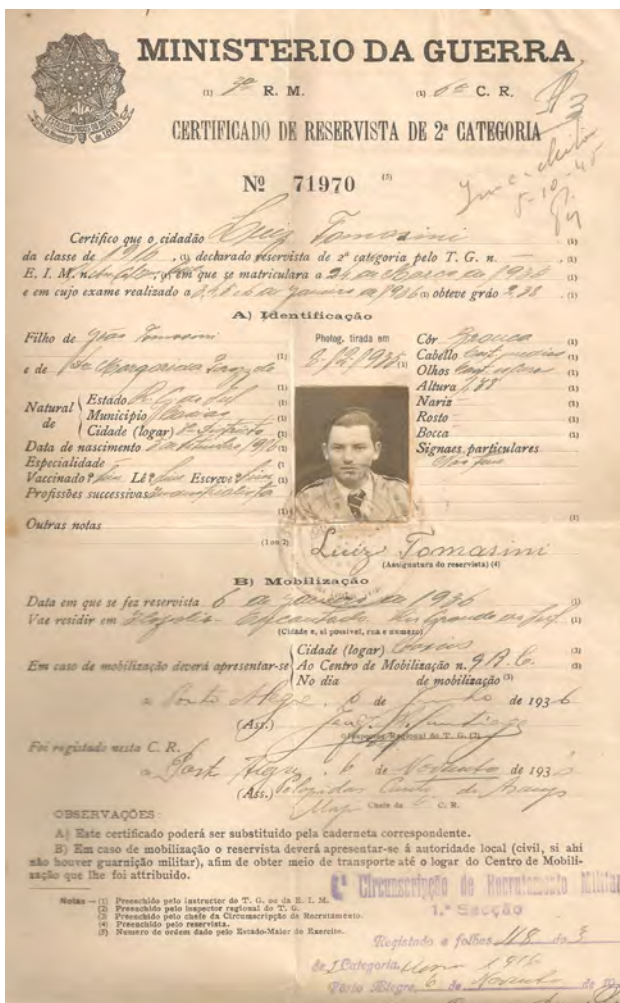 MINISTERIO DA GUERRA
(1) R. M. (1) 6ª C. R.
CERTIFICADO DE RESERVISTA DE 2ª CATEGORIA
Nº 71970 (5)
5-10-45
Certifico que o cidadão Luiz Tomasini (1)
da classe de 1916 (1) declarado reservista de 2ª categoria pelo T. G. n. (1)
E. I. M. n. (1) em que se matriculara a 24 de Março de 1935
e em cujo exame realizado a de Janeiro de 1936 (1) obteve gráo 2,38 (1)
A) Identificação
Filho de João Tomasini (1)
e de Margarida
Natural de
Estado R. G. do Sul (1)
Municipio Caxias (1)
Cidade (logar) 2º Districto (1)
Data de nascimento (1)
Especialidade (1)
Vaccinado? Sim Lê? Sim Escreve? Sim
Profissões successivas (1)
Outras notas
(1 ou 2)
Photog. tirada em
8/2/1935 (1)
Côr Branca (1)
Cabello Cast. (1)
Olhos Cast. (1)
Altura (1)
Nariz (1)
Rosto (1)
Bocca (1)
Signaes particulares
Não tem
(1)
Luiz Tomasini
(Assignatura do reservista) (4)
B) Mobilização
Data em que se fez reservista 6 de Janeiro de 1936 (1)
Vae residir em Encantado. Rio Grande do Sul. (1)
(Cidade e, si possivel, rua e numero)
Em caso de mobilização deverá apresentar-se
Cidade (logar) Caxias (3)
Ao Centro de Mobilização n. 9 R. C. (3)
No dia de mobilização (3)
Porto Alegre, 6 de de 1936
(Ass.)
O Inspector Regional do T. G. (2)
Foi registado nesta C. R.
Porto Alegre, 6 de Novembro de 193
(Ass.)
Chefe da C. R.
OBSERVAÇÕES:
A) Este certificado poderá ser substituido pela caderneta correspondente.
B) Em caso de mobilização o reservista deverá apresentar-se á autoridade local (civil, si ahi
não houver guarnição militar), afim de obter meio de transporte até o logar do Centro de Mobili-
zação que lhe foi attribuido.
Notas — (1) Preenchido pelo instructor do T. G. ou da E. I. M.
(2) Preenchido pelo inspector regional do T. G.
(3) Preenchido pelo chefe da Circumscripção de Recrutamento.
(4) Preenchido pelo reservista.
(5) Numero de ordem dado pelo Estado-Maior do Exercito.
6ª Circumscripção de Recrutamento Militar
1.ª Secção
Registado a folhas 118 do 3
de 2 Categoria, 1916
Porto Alegre, 6 de Novembro de 19